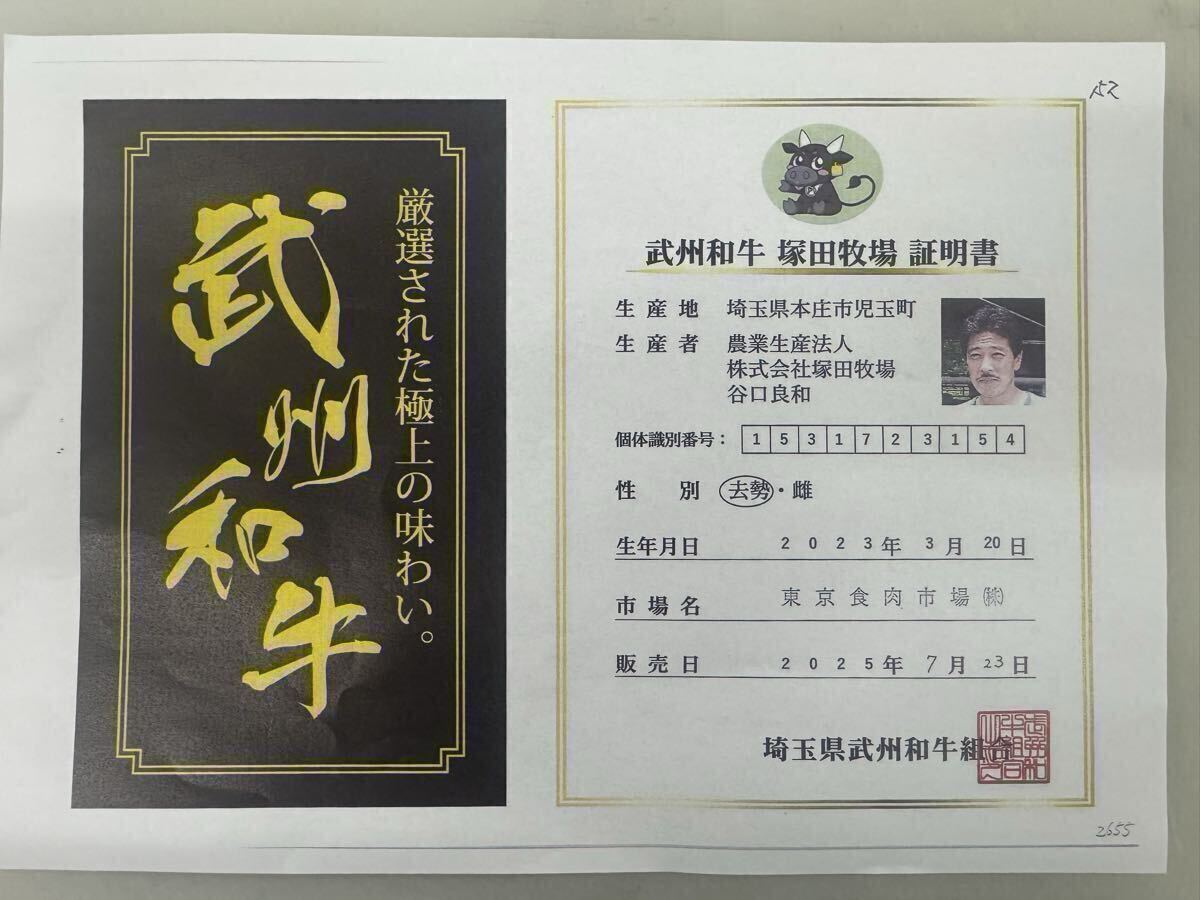 厳選された極上の味わい。
武州和牛
武州和牛 塚田牧場 証明書
生産地 埼玉県本庄市児玉町
生産者 農業生産法人
株式会社塚田牧場
谷口良和
個体識別番号： 1531723154
性別 去勢・雌
生年月日 2023年3月20日
市場名 東京食肉市場㈱
販売日 2025年7月23日
埼玉県武州和牛組合
2655